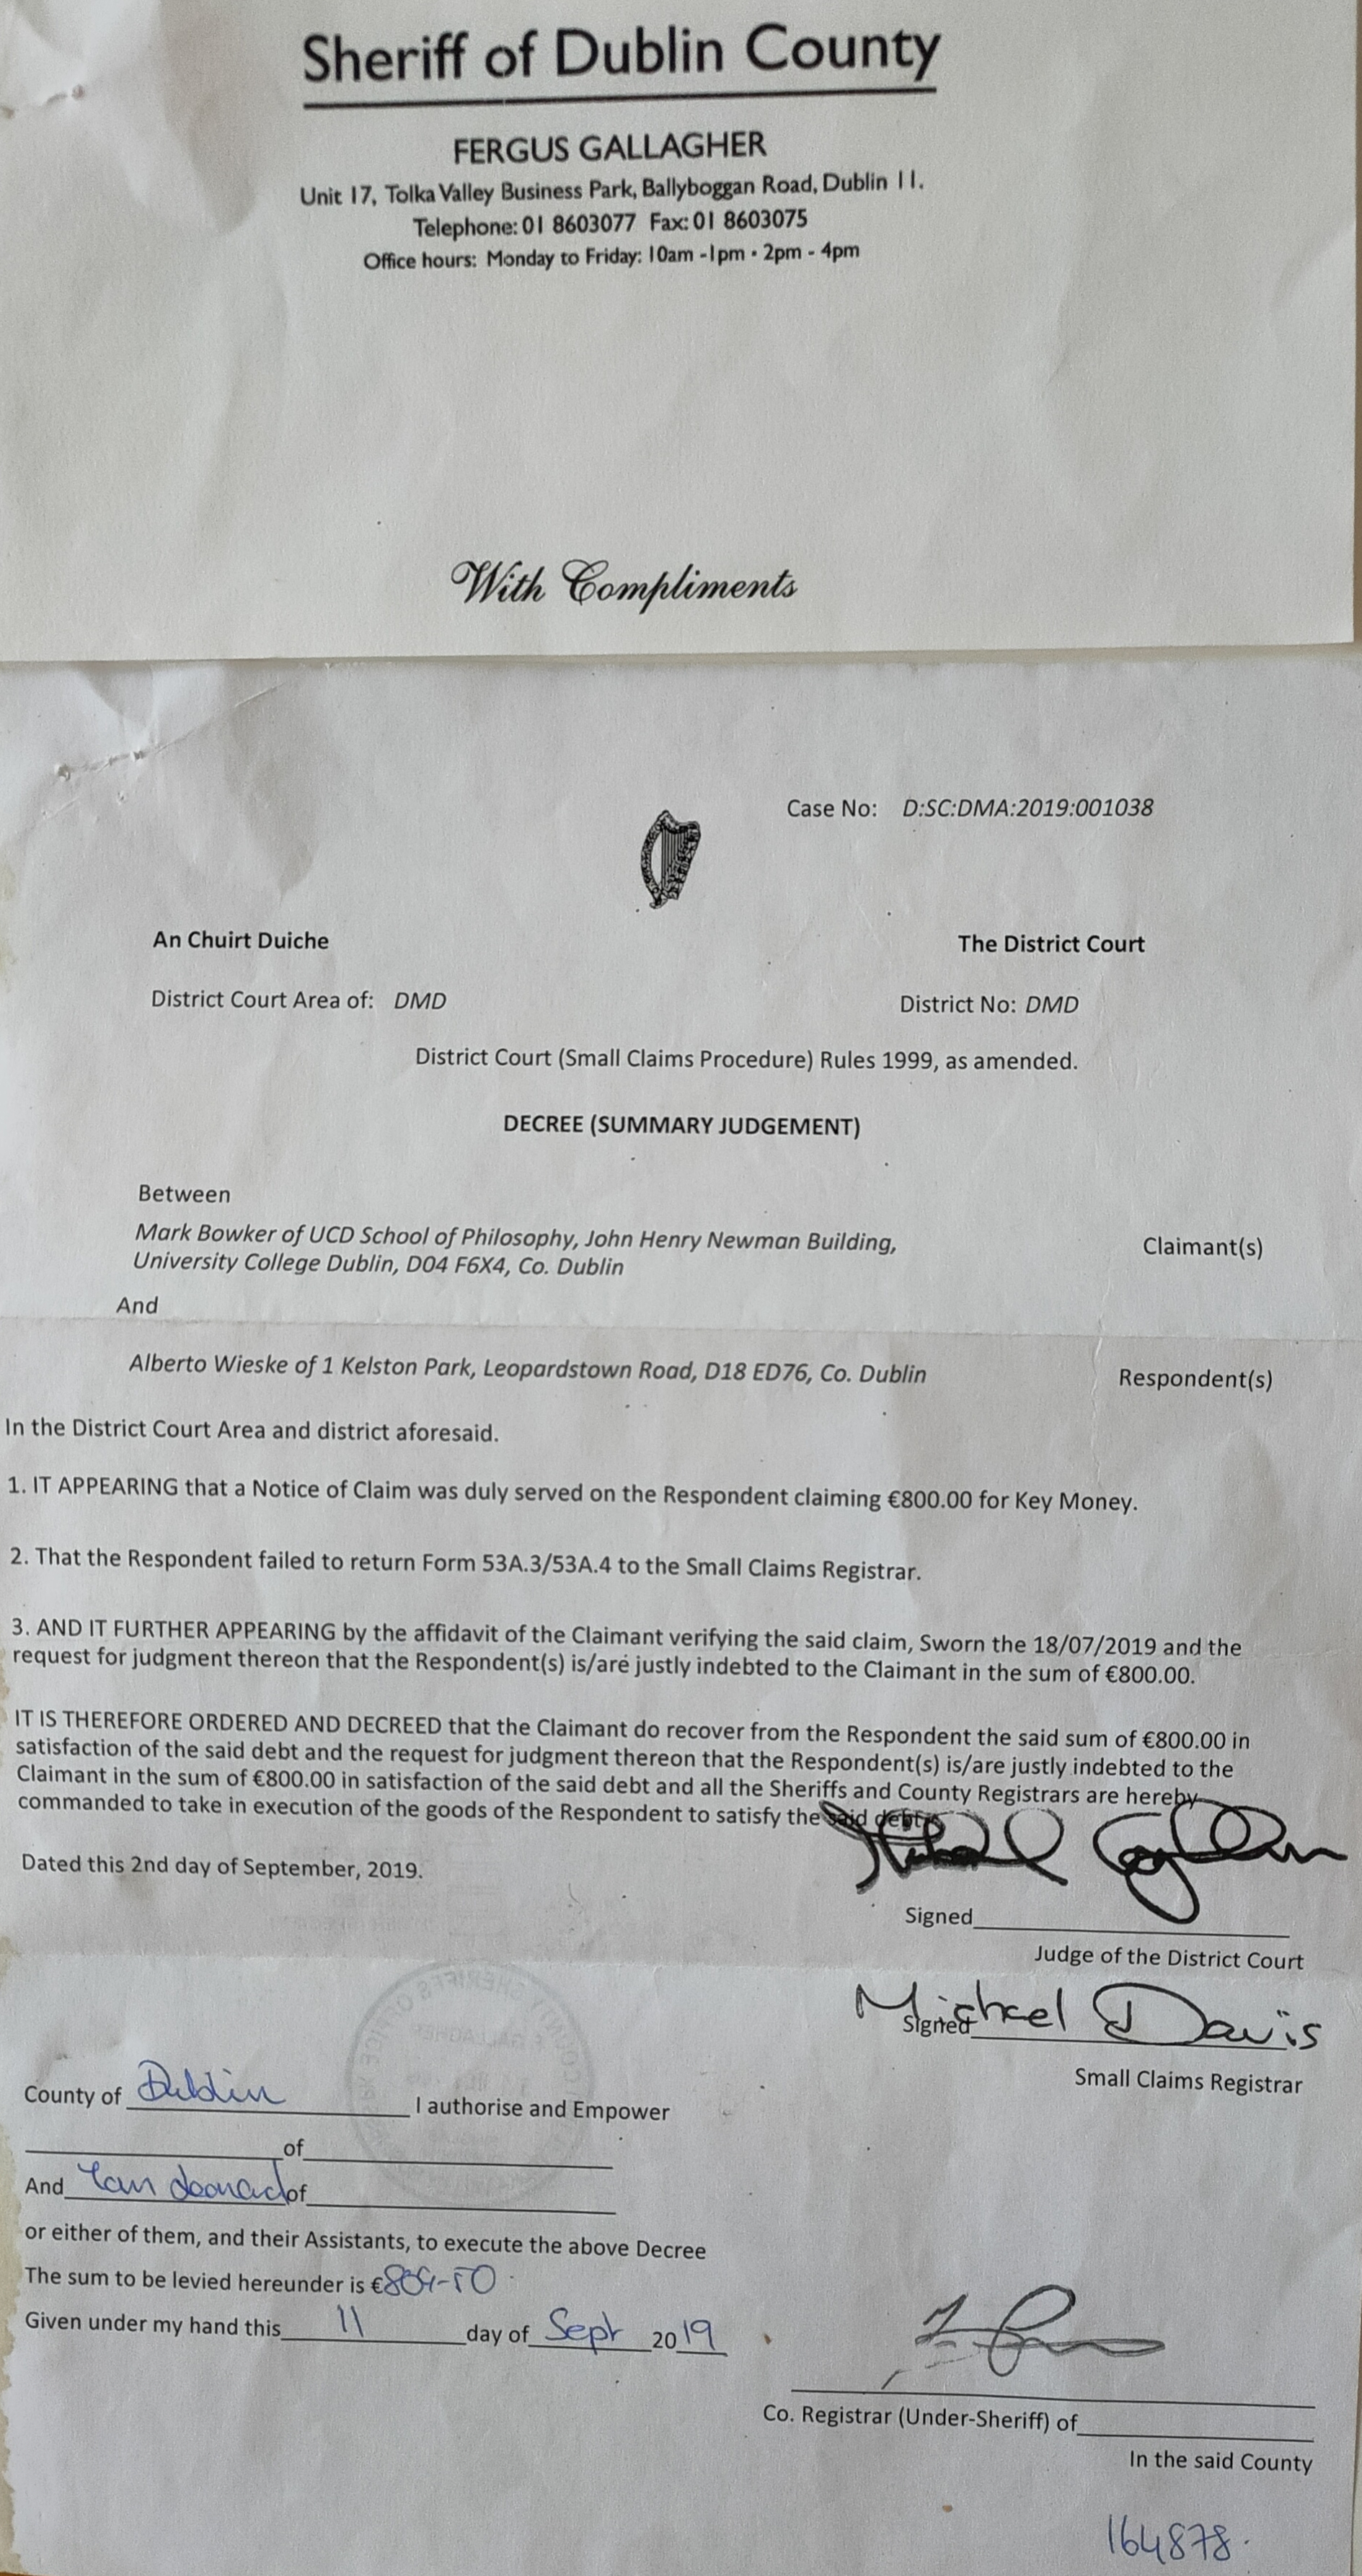 Sheriff of Dublin County
FERGUS GALLAGHER
Unit 17, Tolka Valley Business Park, Ballyboggan Road, Dublin 11.
Telephone: 01 8603077 Fax: 01 8603075
Office hours: Monday to Friday: 10am -1pm • 2pm - 4pm
With Compliments
Case No: D:SC:DMA:2019:001038
An Chuirt Duiche
The District Court
District Court Area of: DMD
District No: DMD
District Court (Small Claims Procedure) Rules 1999, as amended.
DECREE (SUMMARY JUDGEMENT)
Between
Mark Bowker of UCD School of Philosophy, John Henry Newman Building,
University College Dublin, D04 F6X4, Co. Dublin
Claimant(s)
And
Alberto Wieske of 1 Kelston Park, Leopardstown Road, D18 ED76, Co. Dublin
Respondent(s)
In the District Court Area and district aforesaid.
1. IT APPEARING that a Notice of Claim was duly served on the Respondent claiming €800.00 for Key Money.
2. That the Respondent failed to return Form 53A.3/53A.4 to the Small Claims Registrar.
3. AND IT FURTHER APPEARING by the affidavit of the Claimant verifying the said claim, Sworn the 18/07/2019 and the
request for judgment thereon that the Respondent(s) is/are justly indebted to the Claimant in the sum of €800.00.
IT IS THEREFORE ORDERED AND DECREED that the Claimant do recover from the Respondent the said sum of €800.00 in
satisfaction of the said debt and the request for judgment thereon that the Respondent(s) is/are justly indebted to the
Claimant in the sum of €800.00 in satisfaction of the said debt and all the Sheriffs and County Registrars are hereby
commanded to take in execution of the goods of the Respondent to satisfy the said debt
Dated this 2nd day of September, 2019.
Signed
Judge of the District Court
Michael Davis
Signed
Small Claims Registrar
County of Dublin I authorise and Empower
of
And of
or either of them, and their Assistants, to execute the above Decree
The sum to be levied hereunder is €809-50
Given under my hand this 11 day of Sept 2019
Co. Registrar (Under-Sheriff) of
In the said County
164878.